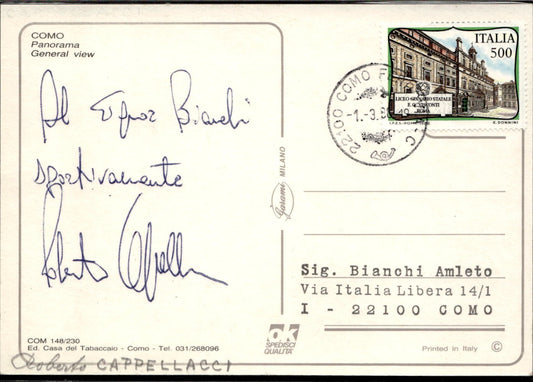 COMO
Panorama
General view
Al signor Bianchi
sportivamente
Roberto Cappellacci
COM 148/230
Ed. Casa del Tabaccaio - Como - Tel. 031/268096
Roberto CAPPELLACCI
MILANO
OK
SPEDISCI
QUALITA'
ITALIA
500
LICEO GINNASIO STATALE
E. Q. VISCONTI
ROMA
22100 COMO
-1.-3.
Sig. Bianchi Amleto
Via Italia Libera 14/1
I - 22100 COMO
Printed in Italy ©